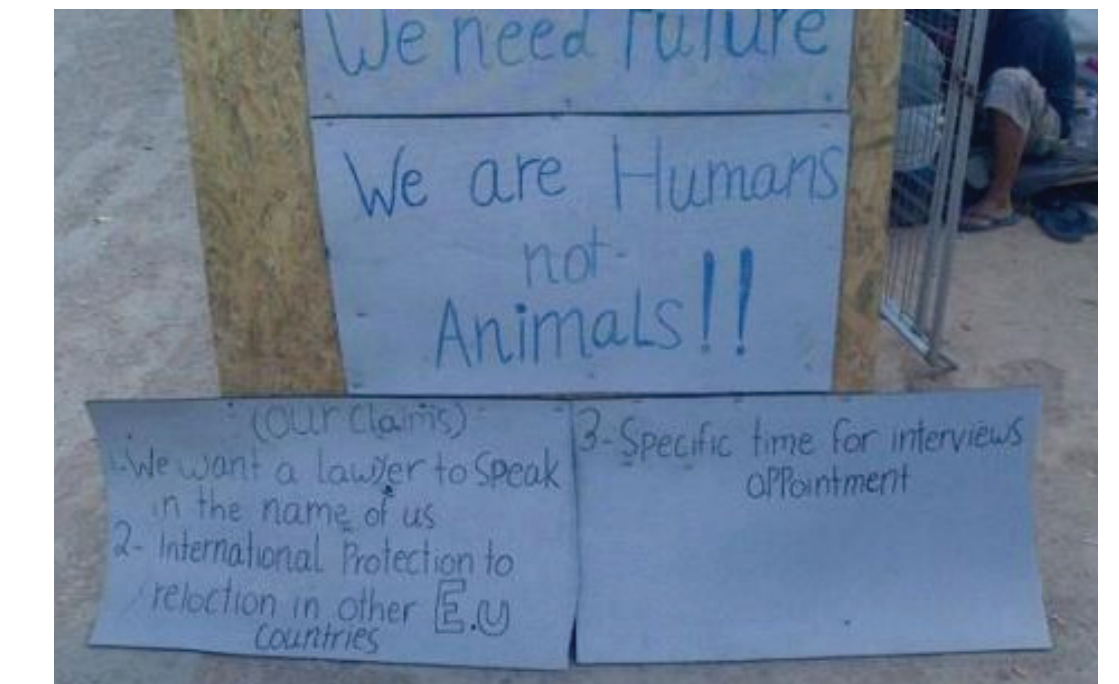 We need Future
We are Humans
not
Animals!!
(Our Claims)
1-We want a lawyer to Speak
in the name of us
2- International Protection to
reloction in other E.U
countries
3-Specific time for interviews
appointment